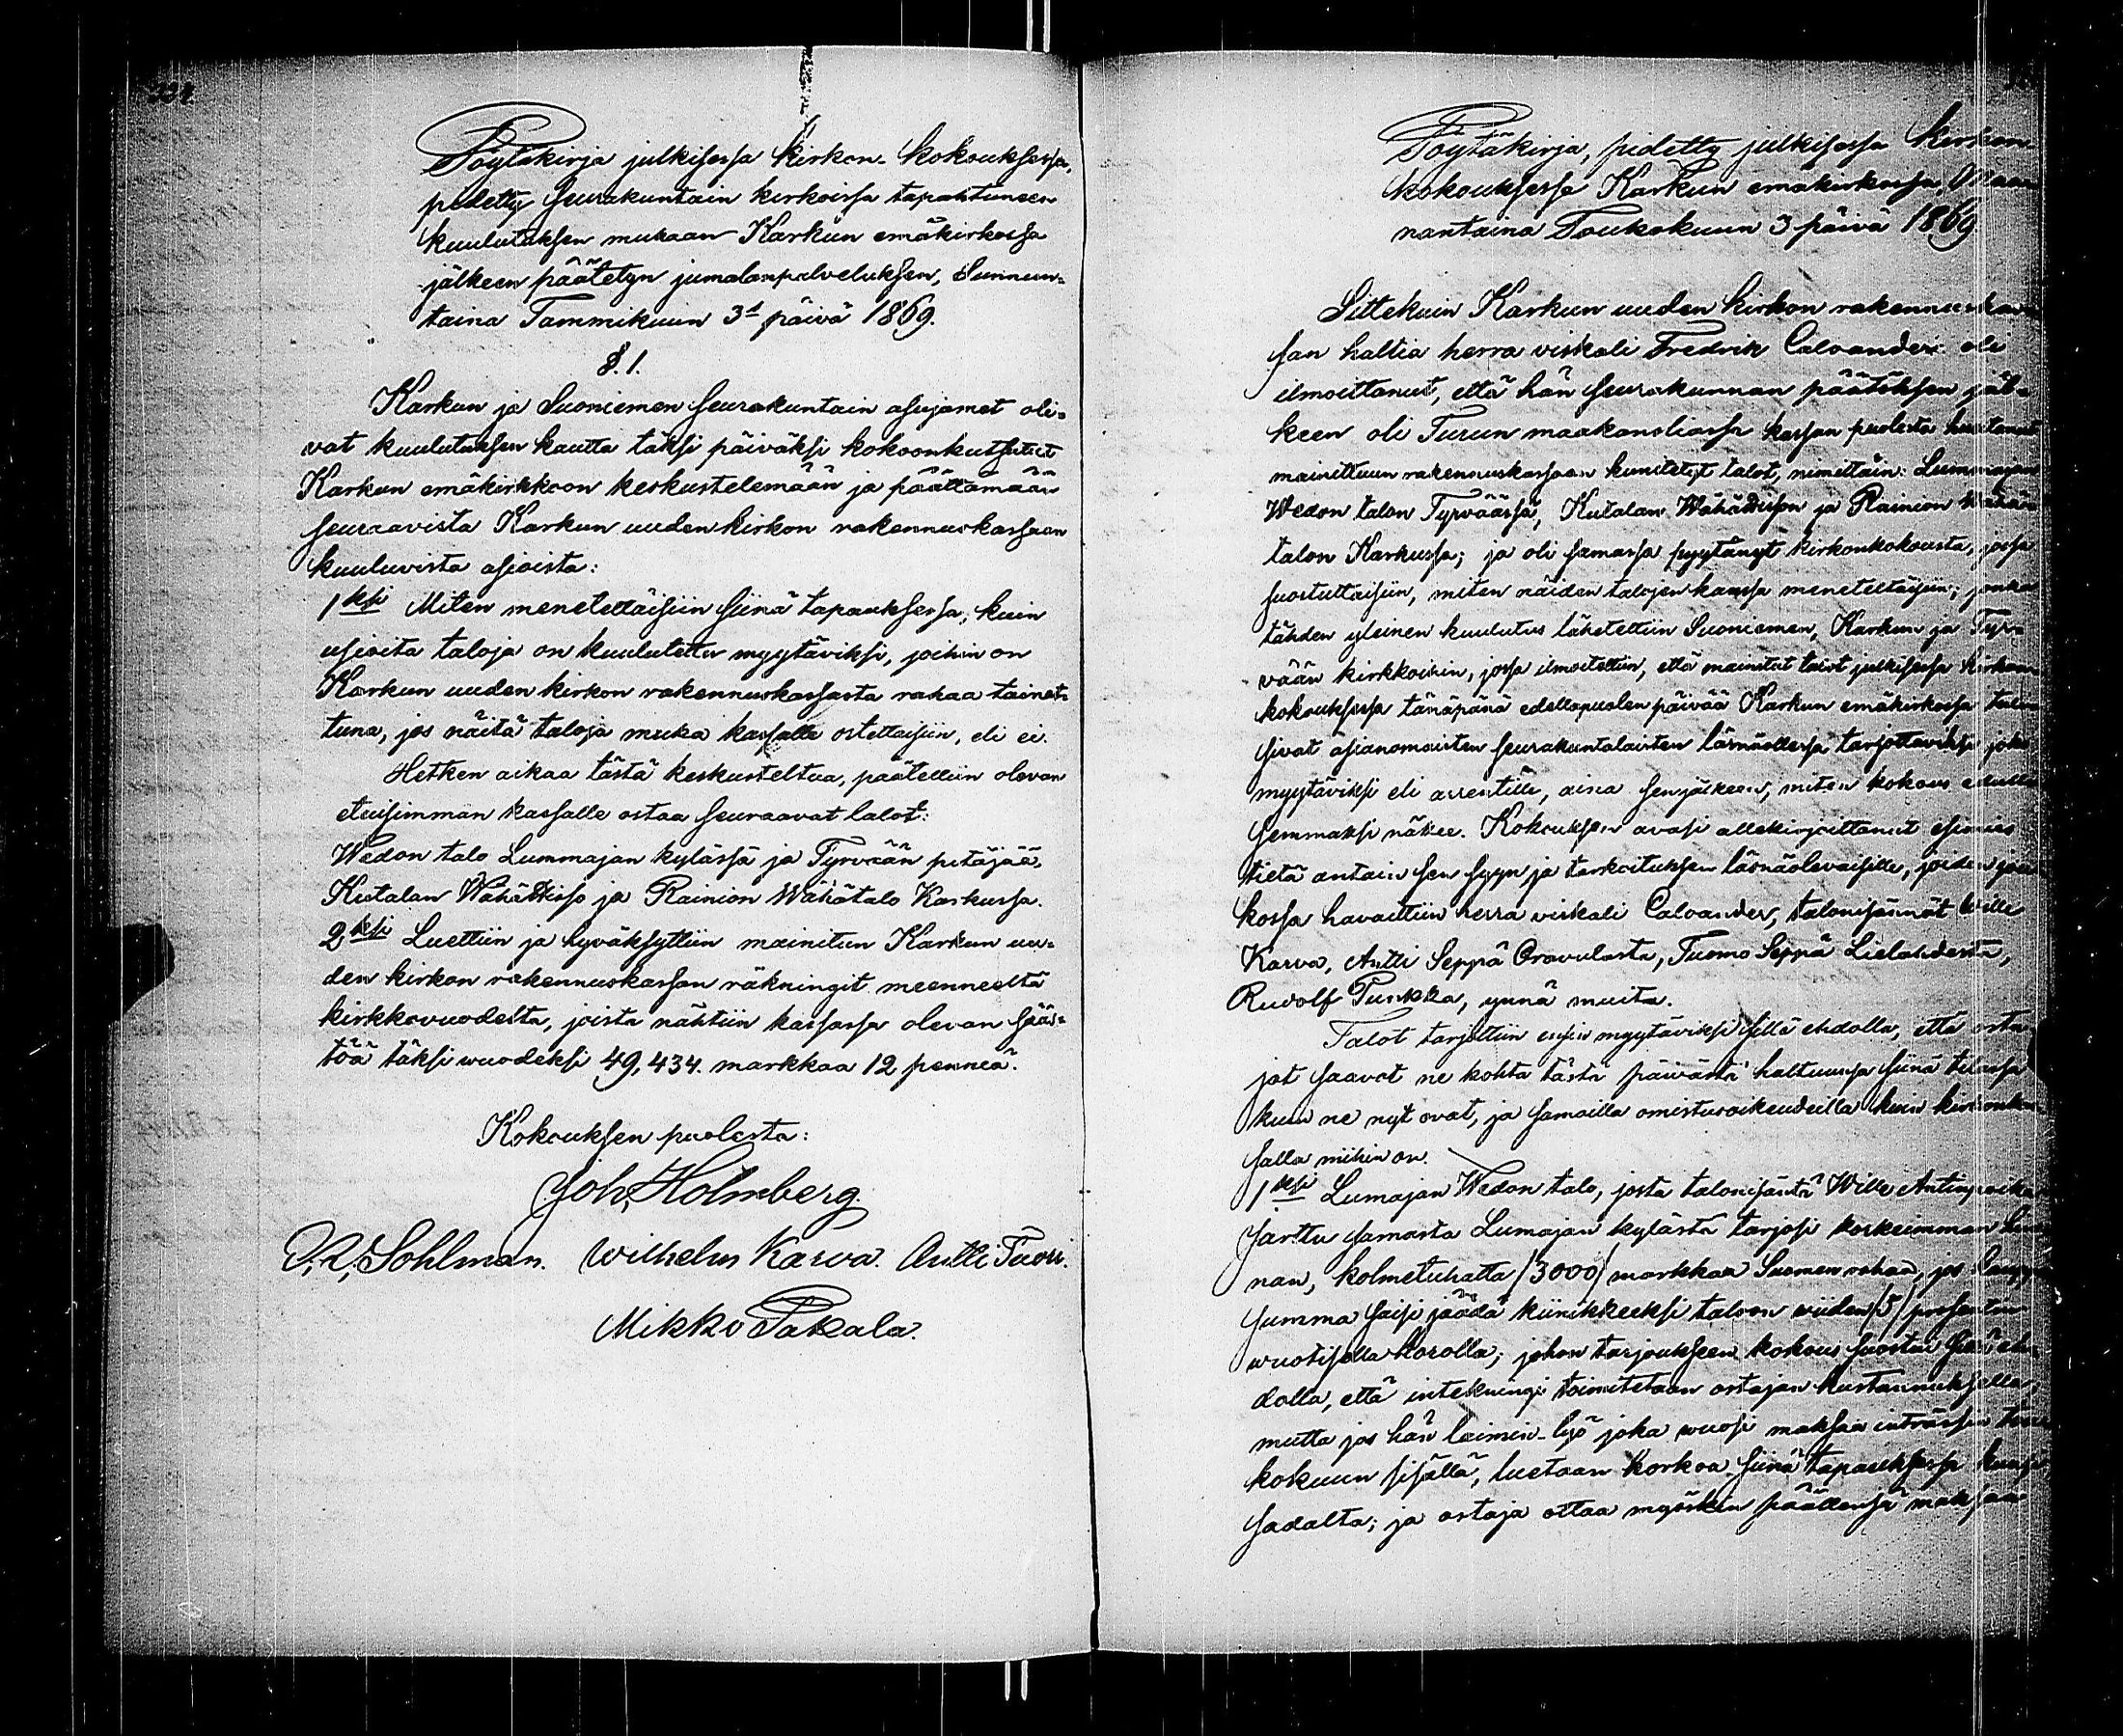 Pöytäkirja julkisessa kirkon-kokouksessa,
pidetty seurakuntain kirkoissa tapahtuneen
kuulutuksen mukaan Karkun emäkirkossa
jälkeen päätetyn jumalanpalveluksen, Sunnun-
taina Tammikuun 31 päivä 1869.
§. 1.
Karkun ja Suoniemen seurakuntain asujamet oli-
vat kuulutuksen kautta täksi päiväksi kokoonkutsutut
Karkun emäkirkkoon keskustelemaan ja päättämään
seuraavista Karkun uuden kirkon rakennuskassaan
kuuluvista asioista:
1ksi Miten meneteltäisiin siinä tapauksessa, kuin
usioita taloja on kuulutettu myytäviksi, joihin on
Karkun uuden kirkon rakennuskassasta rahaa lainat-
tuna, jos näitä taloja muka kassalle ostettaisiin, eli ei.
Hetken aikaa tästä keskusteltua, päätettiin olevan
etuisimman kassalle ostaa seuraavat talot:
Wedon talo Lummajan kylässä ja Tyrvään pitäjää,
Kutalan Wähättisso ja Rainion Wähätalo Karkussa.
2ksi Luettiin ja hyväksyttiin mainitun Karkun uu-
den kirkon rakennuskassan räkningit meenneeltä
kirkkovuodelta, joista nähtiin kassassa olevan sääs-
töä täksi wuodeksi 49,434. markkaa 12 penniä.
Kokouksen puolesta:
Joh. Holmberg.
Sohlman. Wilhelm Karva. Antti Tuori.
Mikko Pakala.
Pöytäkirja, pidetty julkisessa kirkon-
kokouksessa Karkun emäkirkossa, Maa-
nantaina Toukokuun 3 päivä 1869
Sittekuin Karkun uuden kirkon rakennuska-
san haltia herra viskali Fredrik Calvander oli
ilmoittanut, että hän seurakunnan päätöksen jäl-
keen oli Turun maakansliassa kassan puolesta huutanut
mainittuun rakennuskassaan kiinitetyt talot, nimittäin: Lummajan
Wedon talon Tyrväässä, Kutalan Wähättisson ja Rainion Wähän
talon Karkussa; ja oli samassa pyytänyt kirkonkokousta, jossa
suostuttaisiin, miten näiden talojen kanssa meneteltäisiin; jonka
tähden yleinen kuulutus lähetettiin Suoniemen, Karkun ja Tyr-
vään kirkkoihin, jossa ilmoitettiin, että mainitut talot julkisessa kirkon
kokouksessa tänäpänä edellapuolen päivää Karkun emäkirkossa tulee
sivat asianomaisten seurakuntalaisten läsnäollessa tarjottaviksi joko
myytäviksi eli arrentille, aina senjälkeen, miten kokous edulli
semmaksi näkee. Kokouksen avasi allekirjoittanut esimies
tietä antain sen syyn ja tarkoituksen läsnäolevaisille, joiden jou
kossa havaittiin herra viskali Calvander, talonisännät Wille
Karva, Antti Seppä Oravulasta, Tuomo Seppä Lielahdesta,
Rudolf Punkka, ynnä muita.
Talot tarjottiin ensin myytäviksi sillä ehdolla, että osta-
jat saavat ne kohta tästä päivästä haltuunsa siinä tilassa
kuin ne nyt ovat, ja samoilla omistusoikeudeilla kuin kirkonka
salla niihin on.
1ksi Lumajan Wedon talo, josta talonisäntä Wille Antinpoika
Jarttu samasta Lumajan kylästä tarjosi korkeimman hin
nan, kolmetuhatta /3000/ markkaa Suomen rahaa, jos
summa saisi jäädä kiinikkeeksi taloon wiiden /5/ prosentin
wuotisella korolla; johon tarjoukseen kokous suostui sillä eh-
dolla, että intekningi toimitetaan ostajan kustannuksella;
mutta jos hän laimin-lyö joka wuosi maksaa intressin
kokuun sisällä, luetaan korkoa siinä tapauksessa kuusi
sadalta; ja ostaja ottaa myöskin päällensä maksaa